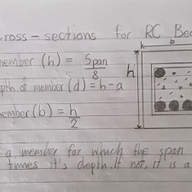 ross - sections for RC Bea
member (h) = Span
8
pth of member (d) = h - a
ember (b) = h
2
h
b
h
a member for which the span
times it's depth. If not, it is a